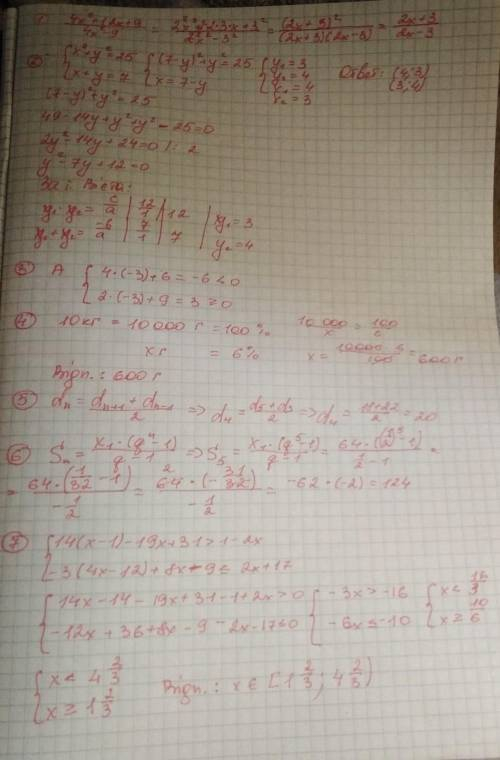 ① (4x²+12x+9)/(4x²-9) = (2²x²+2·2·3·x+3²)/(2²x²-3²) = (2x+3)²/((2x+3)(2x-3)) = (2x+3)/(2x-3)
② { x²+y²=25 { (7-y)²+y²=25 { y₁=3 Ответ: (4;3)
{ x+y=7 { x=7-y y₂=4 (3;4)
(7-y)²+y²=25 x₁=4
x₂=3
49-14y+y²+y²-25=0
2y²-14y+24=0 |:2
y²-7y+12=0
За т. Вієта:
y₁·y₂= c/a | 12/1 | 12 | y₁=3
y₁+y₂= -b/a | 7/1 | 7 | y₂=4
③ A { 4·(-3)+6=-6<0
{ 2·(-3)+9=3≥0
④ 10кг = 10 000 г = 100% 10 000/x = 100/6
x г = 6% x= 10000·6/100 = 600 г
Відп.: 600 г
⑤ dₙ= (dₙ₊₁+dₙ₋₁)/2 => d₄= (d₅+d₃)/2 => d₄= /2 = 20
⑥ Sₙ= x₁·(qⁿ-1)/(q-1) => S₅= x₁·(q⁵-1)/(q-1) = 64·( -1)/(1/2-1) =
= 64·(1/32-1)/(-1/2) = 64·(-31/32)/(-1/2) = -62·(-2)=124
⑦ { 14(x-1)-19x+31>1-2x
{ -3(4x-12)+8x-9≤2x+17
{ 14x-14-19x+31-1+2x>0 { -3x>-16 { x< 16/3
{ -12x+36+8x-9-2x-17≤0 { -6x≤-10 { x≥ 10/6
{ x<4 2/3 Відп.: x∈[1 2/3; 4 2/3)
{ x≥1 2/3